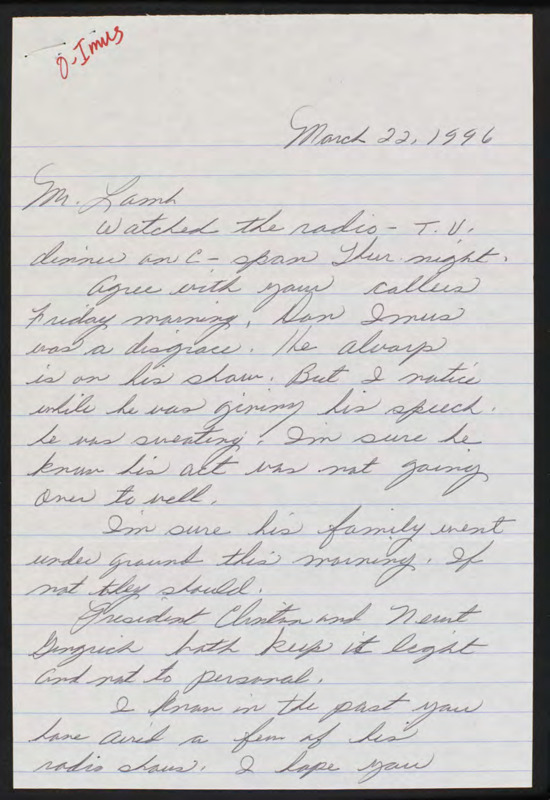 D. Imus
March 22, 1996
Mr. Lamb
Watched the radio - T.V.
dinner on C-span Thur. night.
Agree with your callers
Friday morning, Don Imus
was a disgrace. He always
is on his show. But I notice
while he was giving his speech.
he was sweating. I'm sure he
know his act was not going
over to well.
I'm sure his family went
under ground this morning. If
not they should.
President Clinton and Newt
Gingrich both keep it light
and not to personal.
I know in the past you
have aired a few of his
radio shows. I hope you